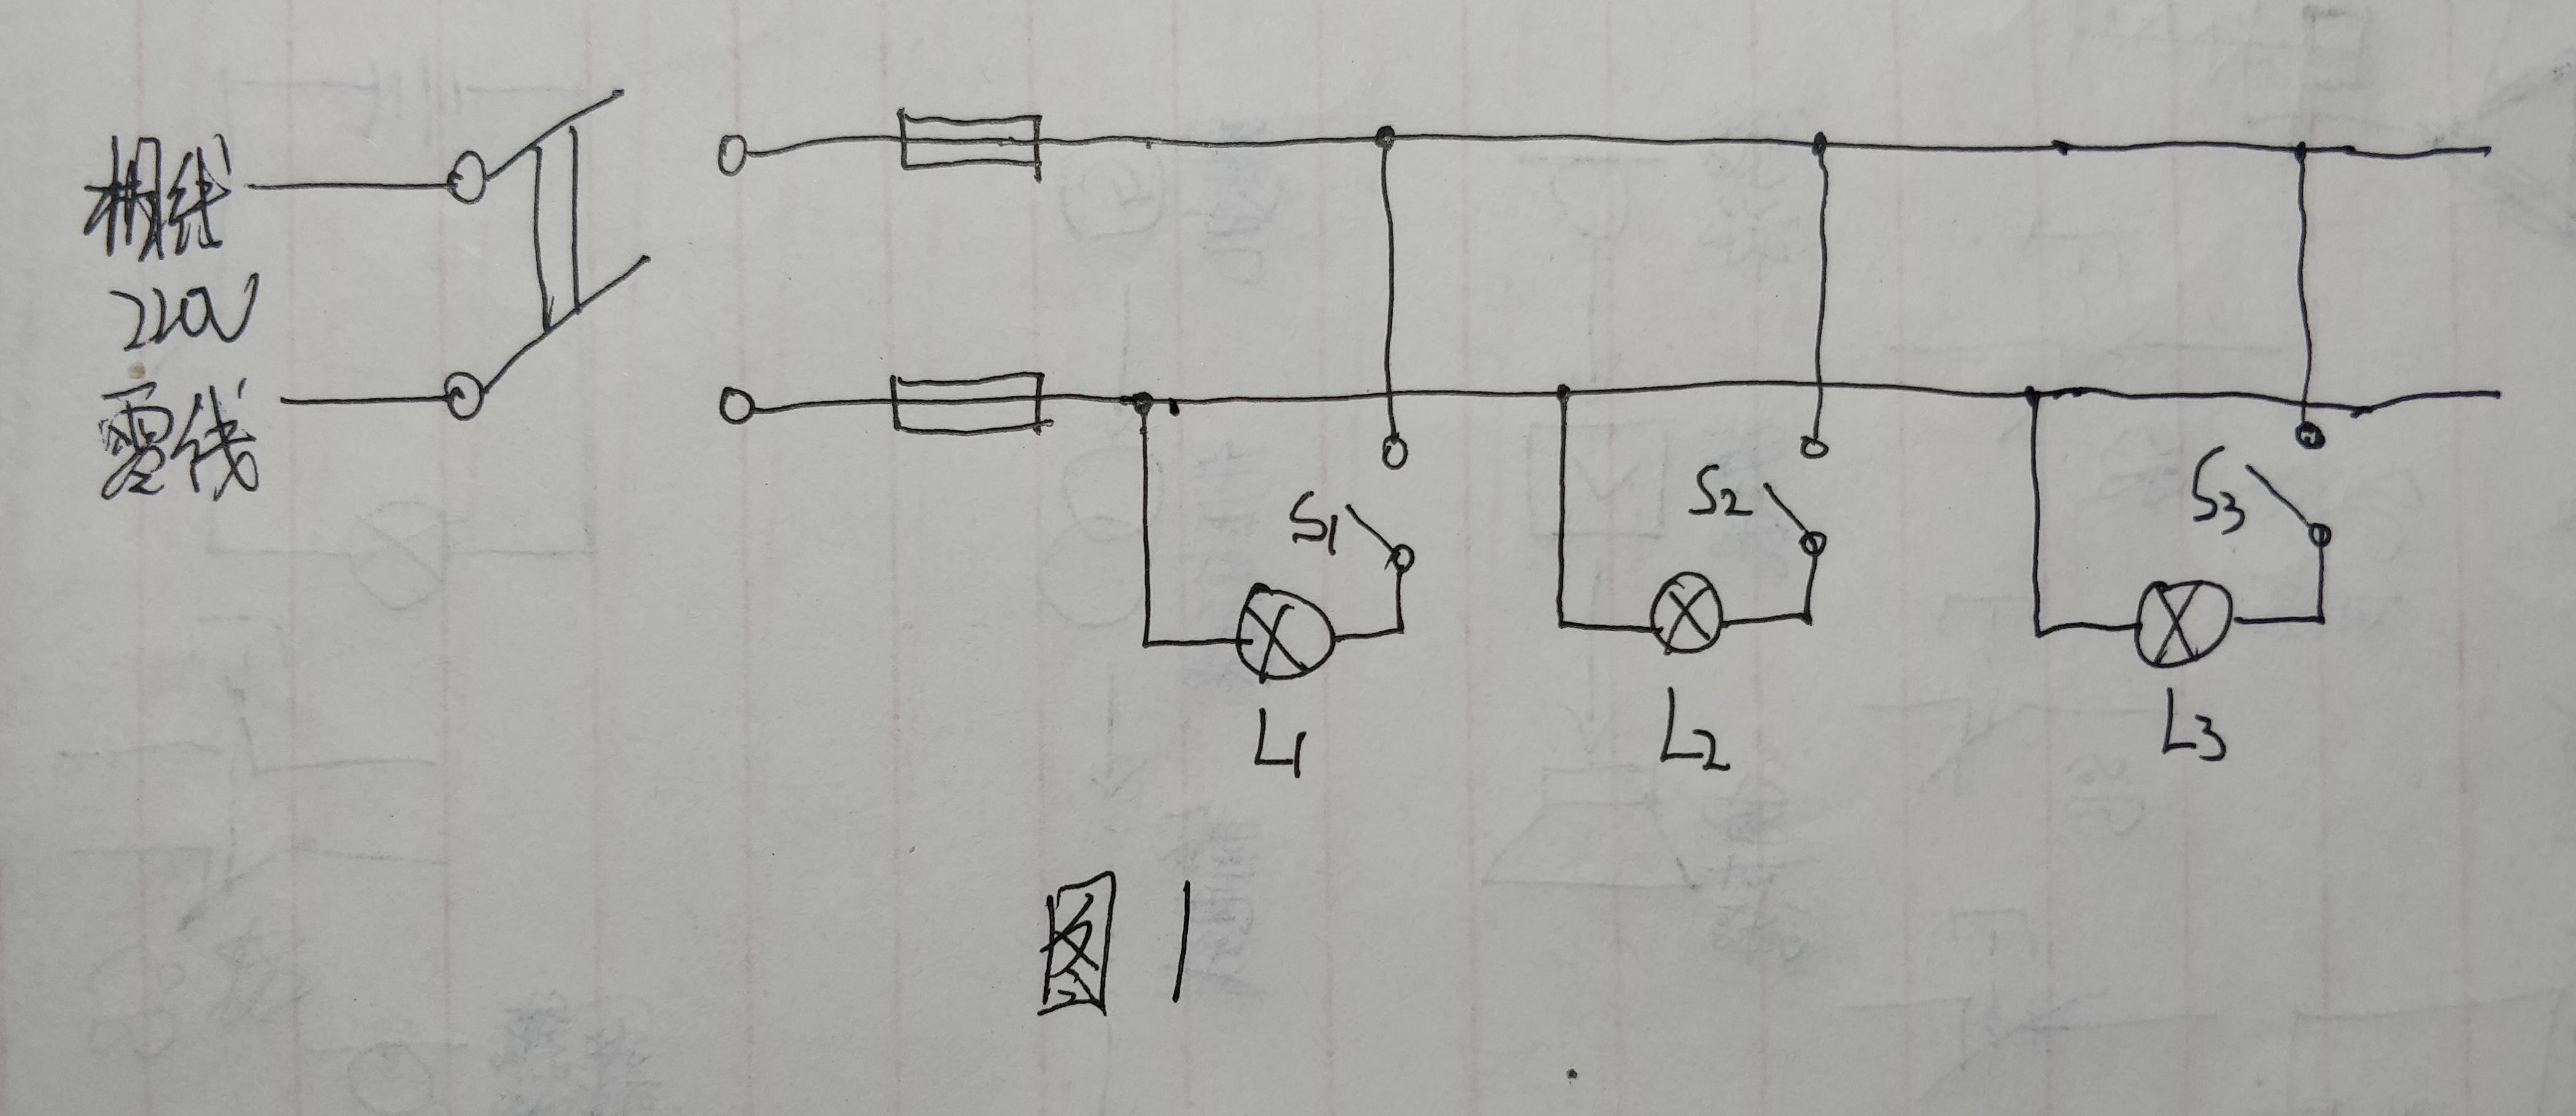 相线
220V
零线
S1
S2
S3
L1
L2
L3
图1